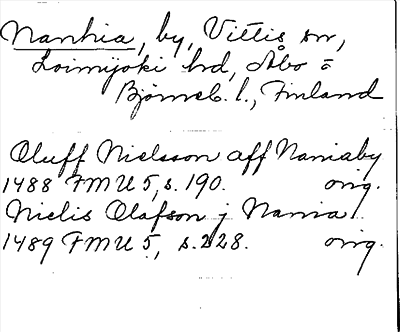 Nanhia, by, Vittis sn,
Loimijoki hd, Åbo o
Björneb. l., Finland
Oluff Nielsson aff Naniaby
1488 FMU 5, s. 190. orig.
Nielis Olafson j Nania.
1489 FMU 5, s. 228. orig.